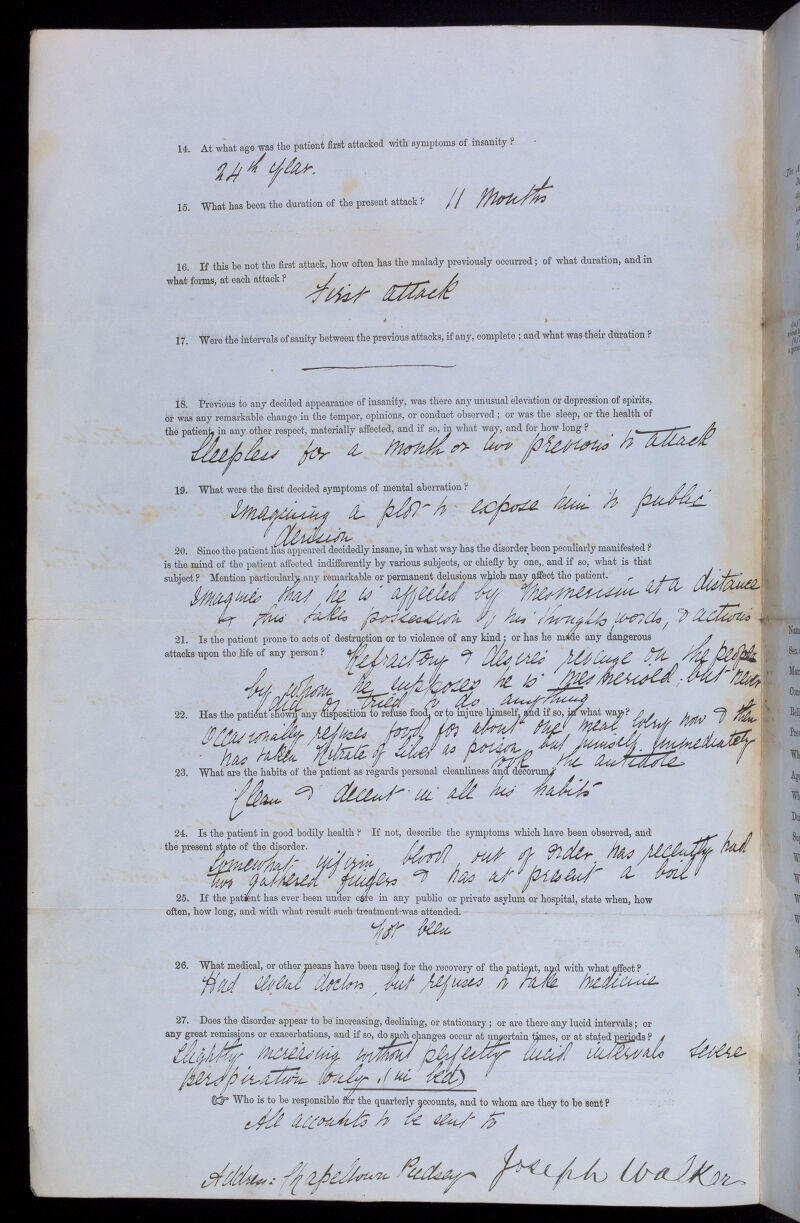 14. At what age was the patient first attacked with symptoms of insanity ?
24th year.
15. What has been the duration of the present attack ? 11 Months
16. If this be not the first attack, how often has the malady previously occurred ; of what duration, and in
what forms, at each attack ?
First attack
17. Were the intervals of sanity between the previous attacks, if any, complete ; and what was their duration ?
18. Previous to any decided appearance of insanity, was there any unusual elevation or depression of spirits,
or was any remarkable change in the temper, opinions, or conduct observed ; or was the sleep, or the health of
the patient, in any other respect, materially affected, and if so, in what way, and for how long ?
Sleepless for a month or two previous to attack
19. What were the first decided symptoms of mental aberration ?
Imagining a plot to expose him to public
derision
20. Since the patient has appeared decidedly insane, in what way has the disorder been peculiarly manifested ?
is the mind of the patient affected indifferently by various subjects, or chiefly by one, and if so, what is that
subject ? Mention particularly any remarkable or permanent delusions which may affect the patient.
Imagines that he is affected by Mesmerism at a distance
& this takes possession of his thoughts, words, & actions
21. Is the patient prone to acts of destruction or to violence of any kind ; or has he made any dangerous
attacks upon the life of any person ? Refractory & desires revenge on the people
by whom he supposes he is mesmerised, but never
did or tried to do anything
22. Has the patient shown any disposition to refuse food, or to injure himself, and if so, in what way ?
Occasionally refuses food for about one meal every now & then
has taken Nitrate of Silver as poison but himself immediately
took the antidote
23. What are the habits of the patient as regards personal cleanliness and decorum ?
Clean & decent in all his habits
24. Is the patient in good bodily health ? If not, describe the symptoms which have been observed, and
the present state of the disorder.
Somewhat blood out of order, has recently had
two gathered fingers & has at present a boil
25. If the patient has ever been under care in any public or private asylum or hospital, state when, how
often, how long, and with what result such treatment was attended.
Not been
26. What medical, or other means have been used for the recovery of the patient, and with what effect ?
Had several doctors, but refuses to take medicine
27. Does the disorder appear to be increasing, declining, or stationary ; or are there any lucid intervals ; or
any great remissions or exacerbations, and if so, do such changes occur at uncertain times, or at stated periods ?
Slightly increasing without perfectly lucid intervals severe
perspiration only (in bed)
☞ Who is to be responsible for the quarterly accounts, and to whom are they to be sent ?
All accounts to be sent to
Address: Chapeltown Pudsey Joseph Walker